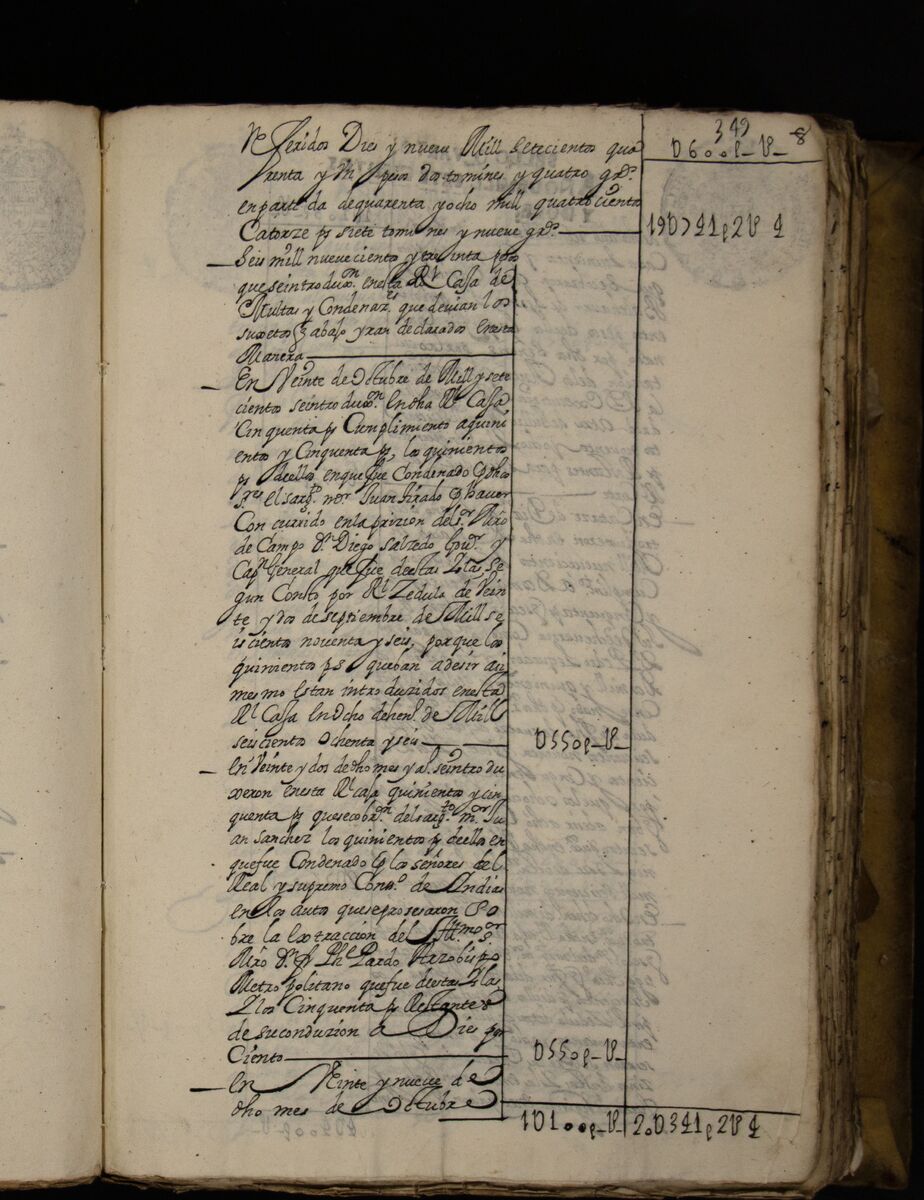 349 8
D600p_U_
Referidos Dies y nueve Mill Setecientos qua
renta y Un pesos dos tomines y quatro grs.
en partida de quarenta y ocho mill quatrocientos
Catorze ps siete tomines y nueve grs. 19D741p2U4
Seis mill nueve cientos y treinta pesos
que se introdux.on en esta Rl Casa de
Multas y Condenaz.es que devian los
suxetos q abajo yran declarados en esta
Manera
En Veinte de Octubre de Mill y sete
cientos se introdux.on en dha Rl Cassa
Cinquenta ps Cumplimiento a quini
entos y Cinquenta ps, los quinientos
ps de ellos en que fue Condenado por dhos
s.res el sarg.to m.or Juan tirado por haver
Concurrido en la prizion del s.r Mro
de Campo D.n Diego Salzedo Gov.or y
Cap.n General que fue de estas Yslas se
gun Consto por Rl Zedula de Vein
te y dos de septiembre de Mill se
iscientos noventa y seis, porque los
quinientos ps que
mesmo estan introduzidos en esta
Rl Cassa en Ocho de hen.o de Mill
seiscientos Ochenta y seis D550p_U_
En Veinte y dos de dho mes y a.o se introdu
xeron en esta Rl casa quinientos y cin
quenta ps que se cobr.on del sarg.to m.or Ju
an sanchez los quinientos ps de ellos en
que fue Condenado por los señores del
Real y supremo Cons.o de Indias
en los autos que se prosesaron so
bre la extraccion del Ill.mo s.or
Mro D.n fr Phe Pardo Arzobispo
Metropolitano que fue de estas Yslas
Y los Cinquenta ps Restantes
de su conduzion a Dies por
Ciento D550p_U_
En Veinte y nueve de
dho mes de Octubre
1D100p_U_ 20D341p2U4